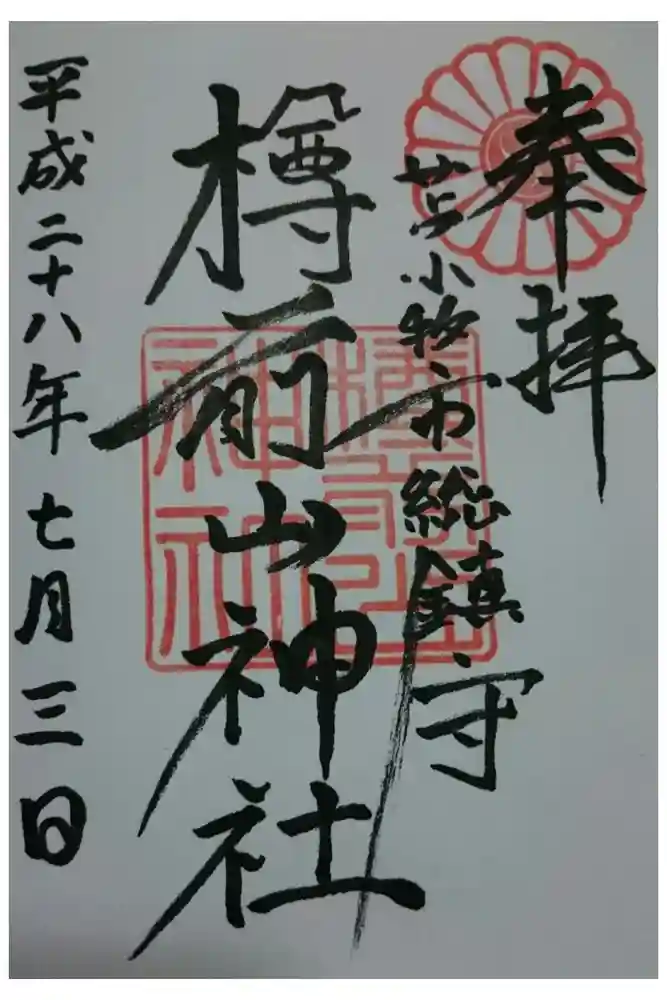 奉拝
苫小牧市総鎮守
樽前山神社
樽前山神社
平成二十八年七月三日